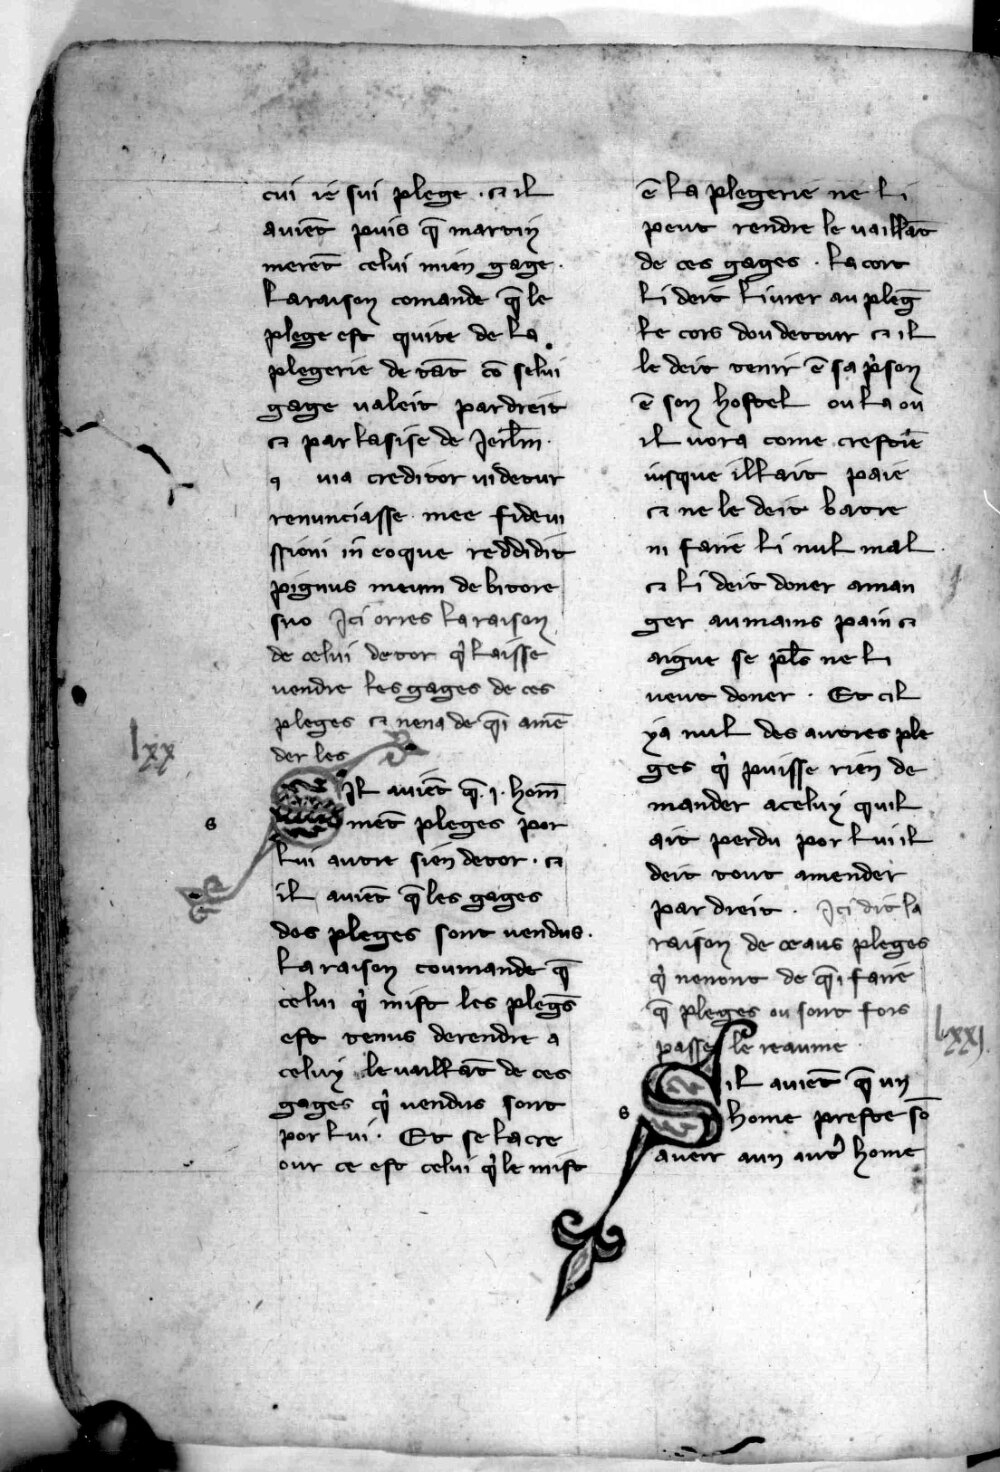 cui ie sui plege · ⁊ il
auiēt puis q̄ martin
merēt celui mien gage ·
La raison comande q̄ le
plege est quite de la
plegerie de tāt cō selui
gage ualeit par dreit
⁊ par lasise de Jerlm̄ ·
uia creditor uidetur
renunciasse mee fideiu
ssioni in eo que reddidit
pignus meum debitore
suo Ici orres la raison
de celui detor q̇ laisse
uendre les gages de ces
pleges ⁊ nena de q̄i amē
der les
lxx
s
Sil auiēt q̄ · i · hom̄
mēt pleges por
lui autre sien detor · ⁊
il auiēt q̄ les gages
dos pleges sont uendus ·
La raison coumande q̄
celui q̇ mist les plegēs
est tenus de rendre a
celuy le uaillāt de ces
gages q̇ uendus sont
por lui · Et se la cre
our ce est celui q̇ le mist
ē la plegerie ne li
peut rendre le uaillāt
de ces gages · La cort
li deit liurer au pleḡ
le cors dou detour ⁊ il
le deit tenir ē sa ṗson
ē son hostel ou la ou
il uora come crestiē
iusque il lait paie
⁊ ne le deit batre
ni faire li nul mal
⁊ li deit doner a man
ger au mains pain ⁊
aigue se pl̄s ne li
ueut doner · Et cil
ya nul des autres ple
ges q̇ puisse rien de
mander a celuy quil
ait perdu por lui il
deit tout amender
par dreit · Ici dit la
raison de ceaus pleges
q̇ nenont de q̄i faire
q̄ pleges ou sont fors
passe le reaume
lxxj
s
Sil auiēt q̄ un
home preste sō
aueir aun aut̉ home